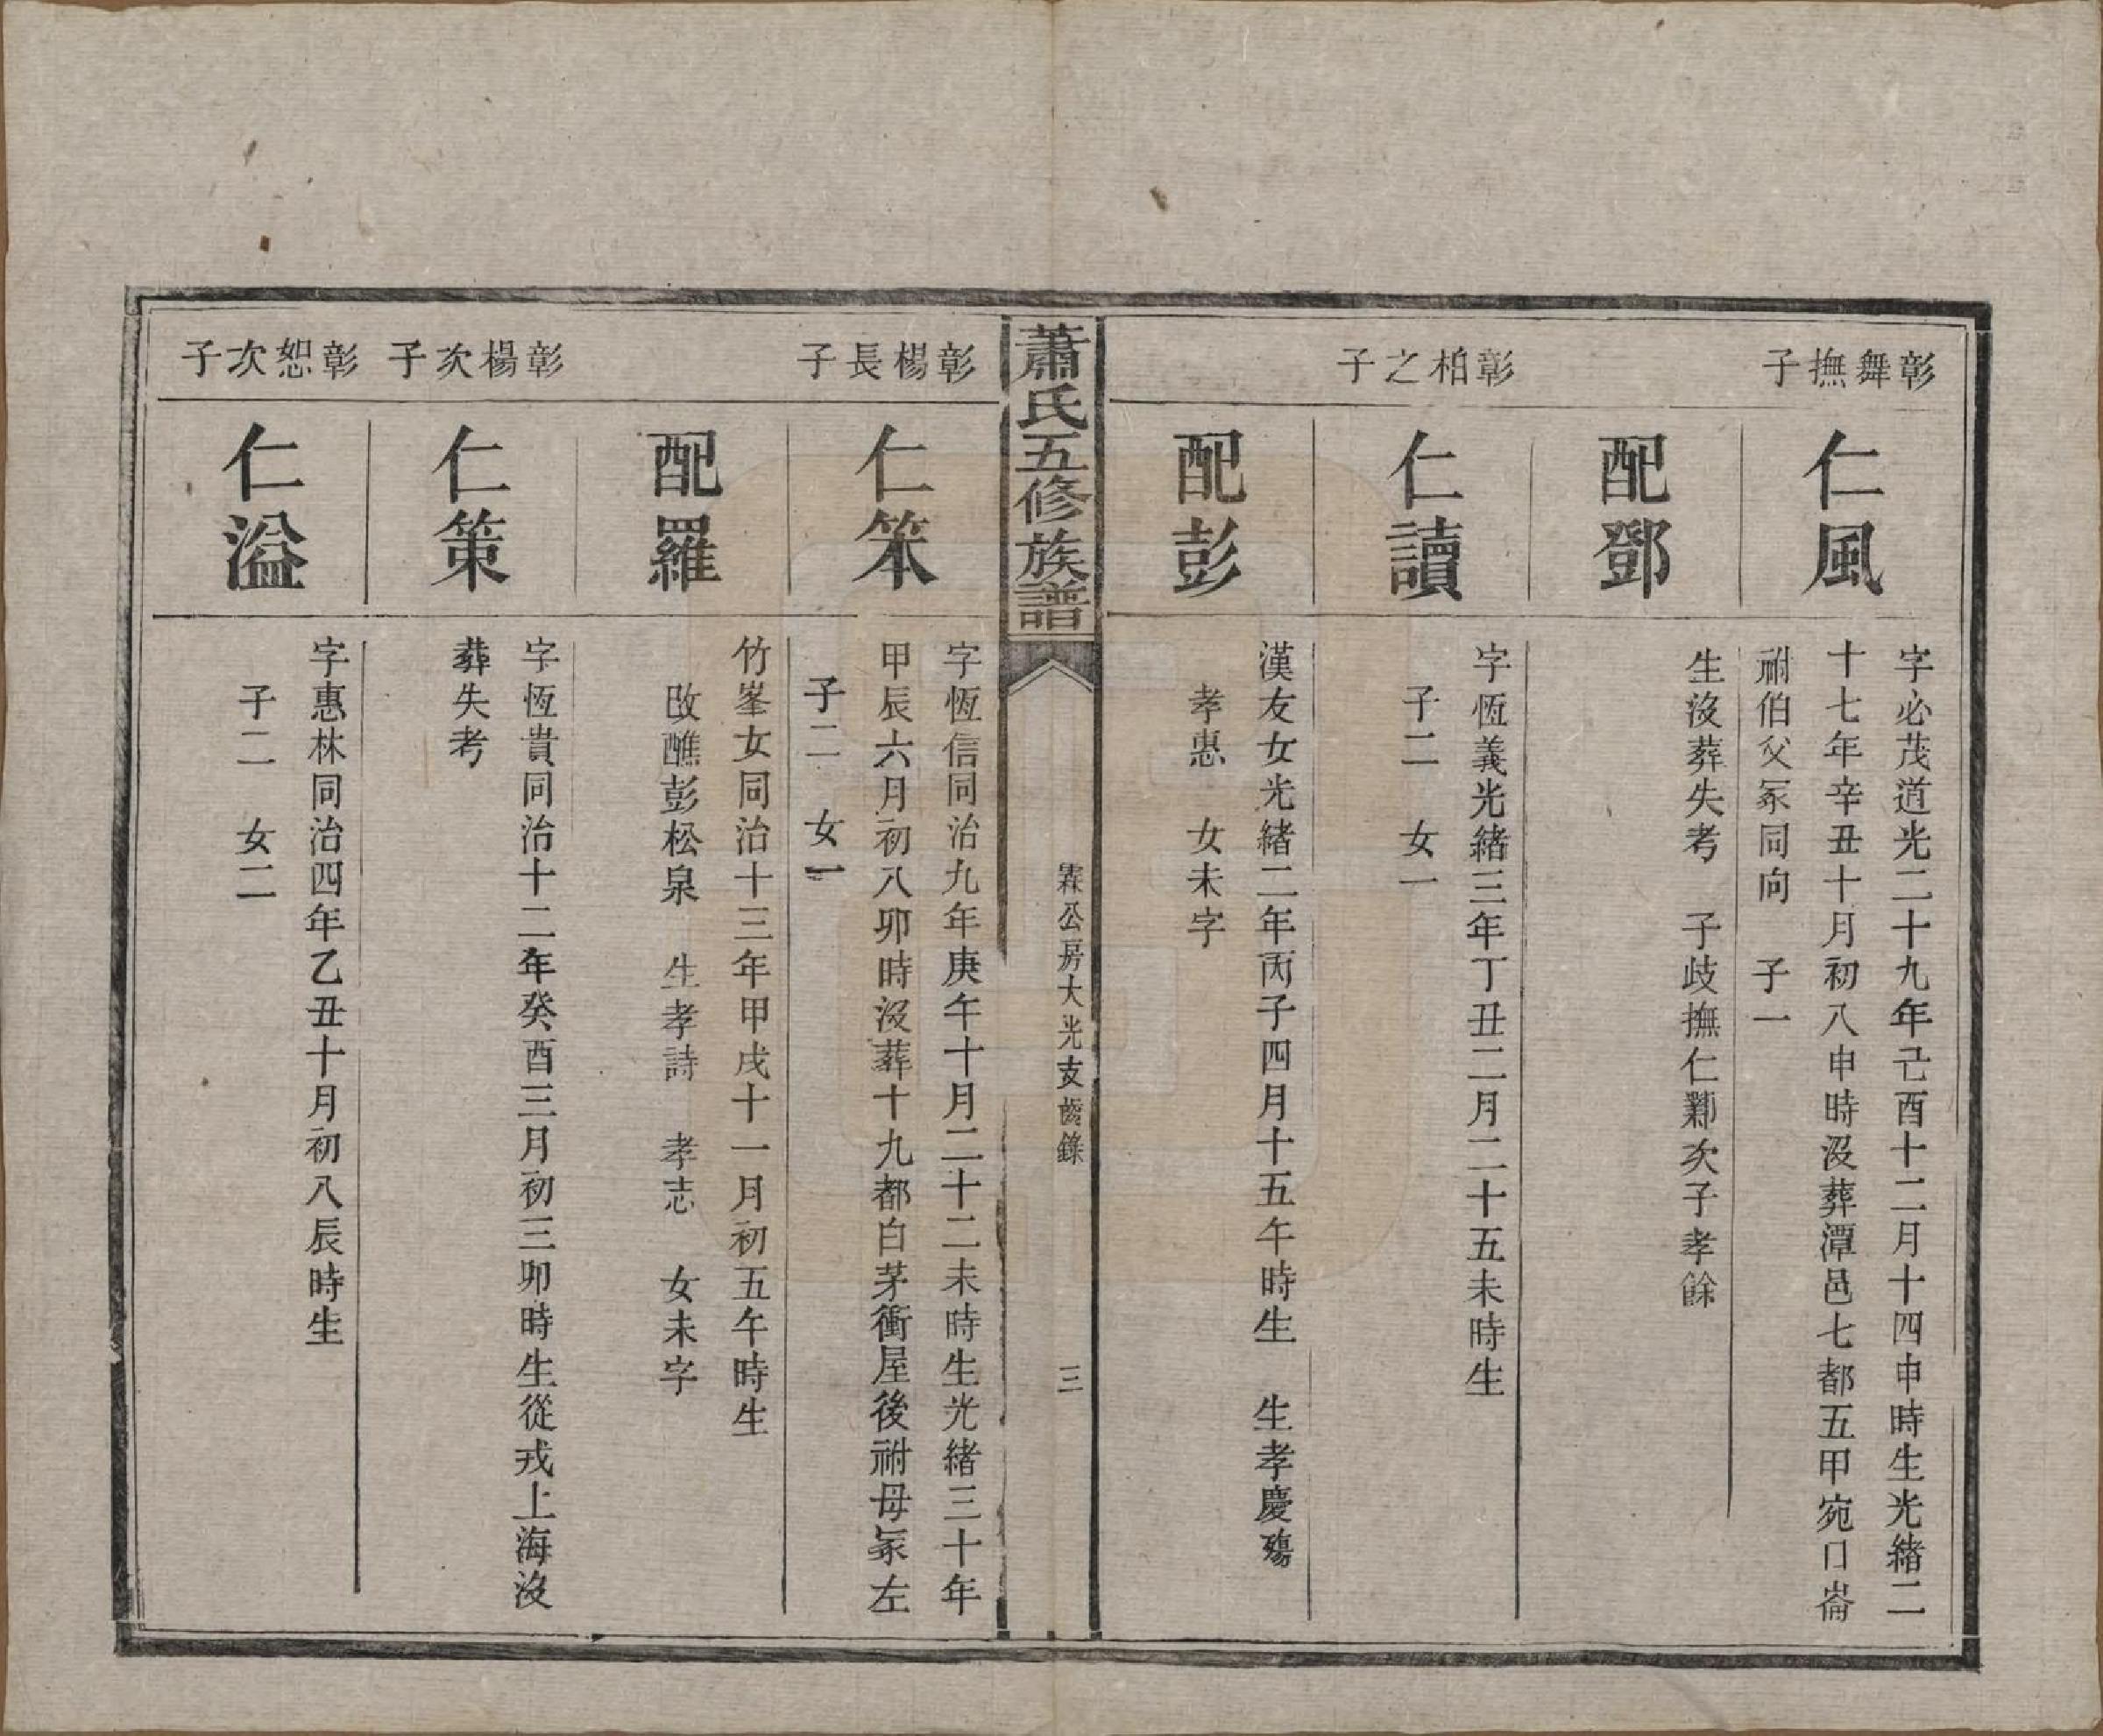 彰舞撫子
仁風
字必茂道光二十九年己酉十二月十四申時生光緒二
十七年辛丑十月初八申時沒葬潭邑七都五甲宛口崙
祔伯父冢同向　子一
配鄧
生沒葬失考　子歧撫仁鄴次子孝餘
彰柏之子
仁讀
字恆義光緒三年丁丑二月二十五未時生
子二　女一
配彭
漢友女光緒二年丙子四月十五午時生　生孝慶殤
孝惠　女未字
蕭氏五修族譜
霖公房大光支齒錄
三
彰楊長子
仁笨
字恆信同治九年庚午十月二十二未時生光緒三十年
甲辰六月初八卯時沒葬十九都白茅衝屋後祔母冢左
子二　女一
配羅
竹峯女同治十三年甲戌十一月初五午時生
改醮彭松泉　生孝詩　孝志　女未字
彰楊次子
仁策
字恆貴同治十二年癸酉三月初三卯時生從戎上海沒
葬失考
彰恕次子
仁溢
字惠林同治四年乙丑十月初八辰時生
子二　女二